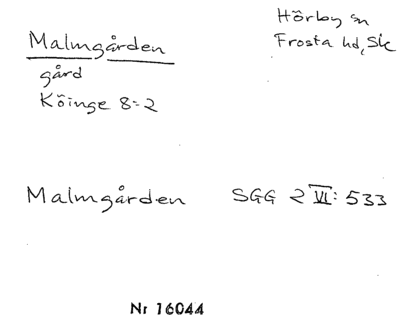 Malmgården
gård
Köinge 8:2
Hörby sn
Frosta hd, Sk
Malmgården SGG 2 VI: 533
Nr 16044